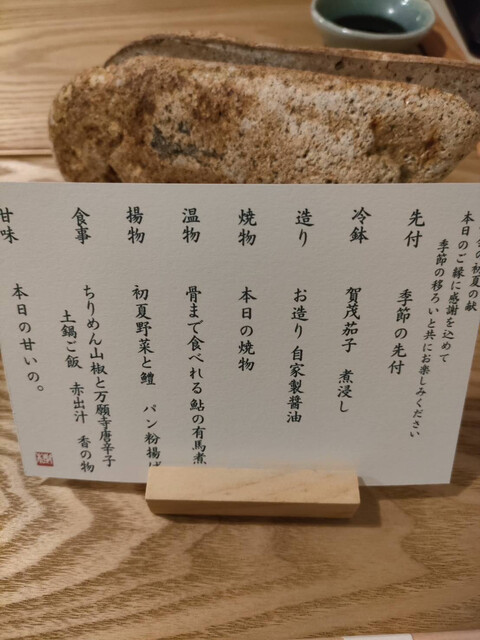 の初夏の献
本日のご縁に感謝を込めて
季節の移ろいと共にお楽しみください
先付 季節の先付
冷鉢 賀茂茄子 煮浸し
造り お造り 自家製醬油
焼物 本日の焼物
温物 骨まで食べれる鮎の有馬煮
揚物 初夏野菜と鱧 パン粉揚げ
食事 ちりめん山椒と万願寺唐辛子
土鍋ご飯 赤出汁 香の物
甘味 本日の甘いの。